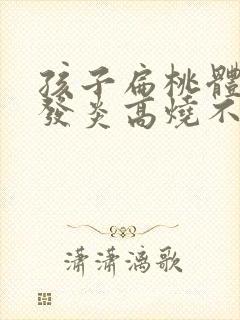 孩子扁桃體
發炎高燒不
瀟瀟漓歌